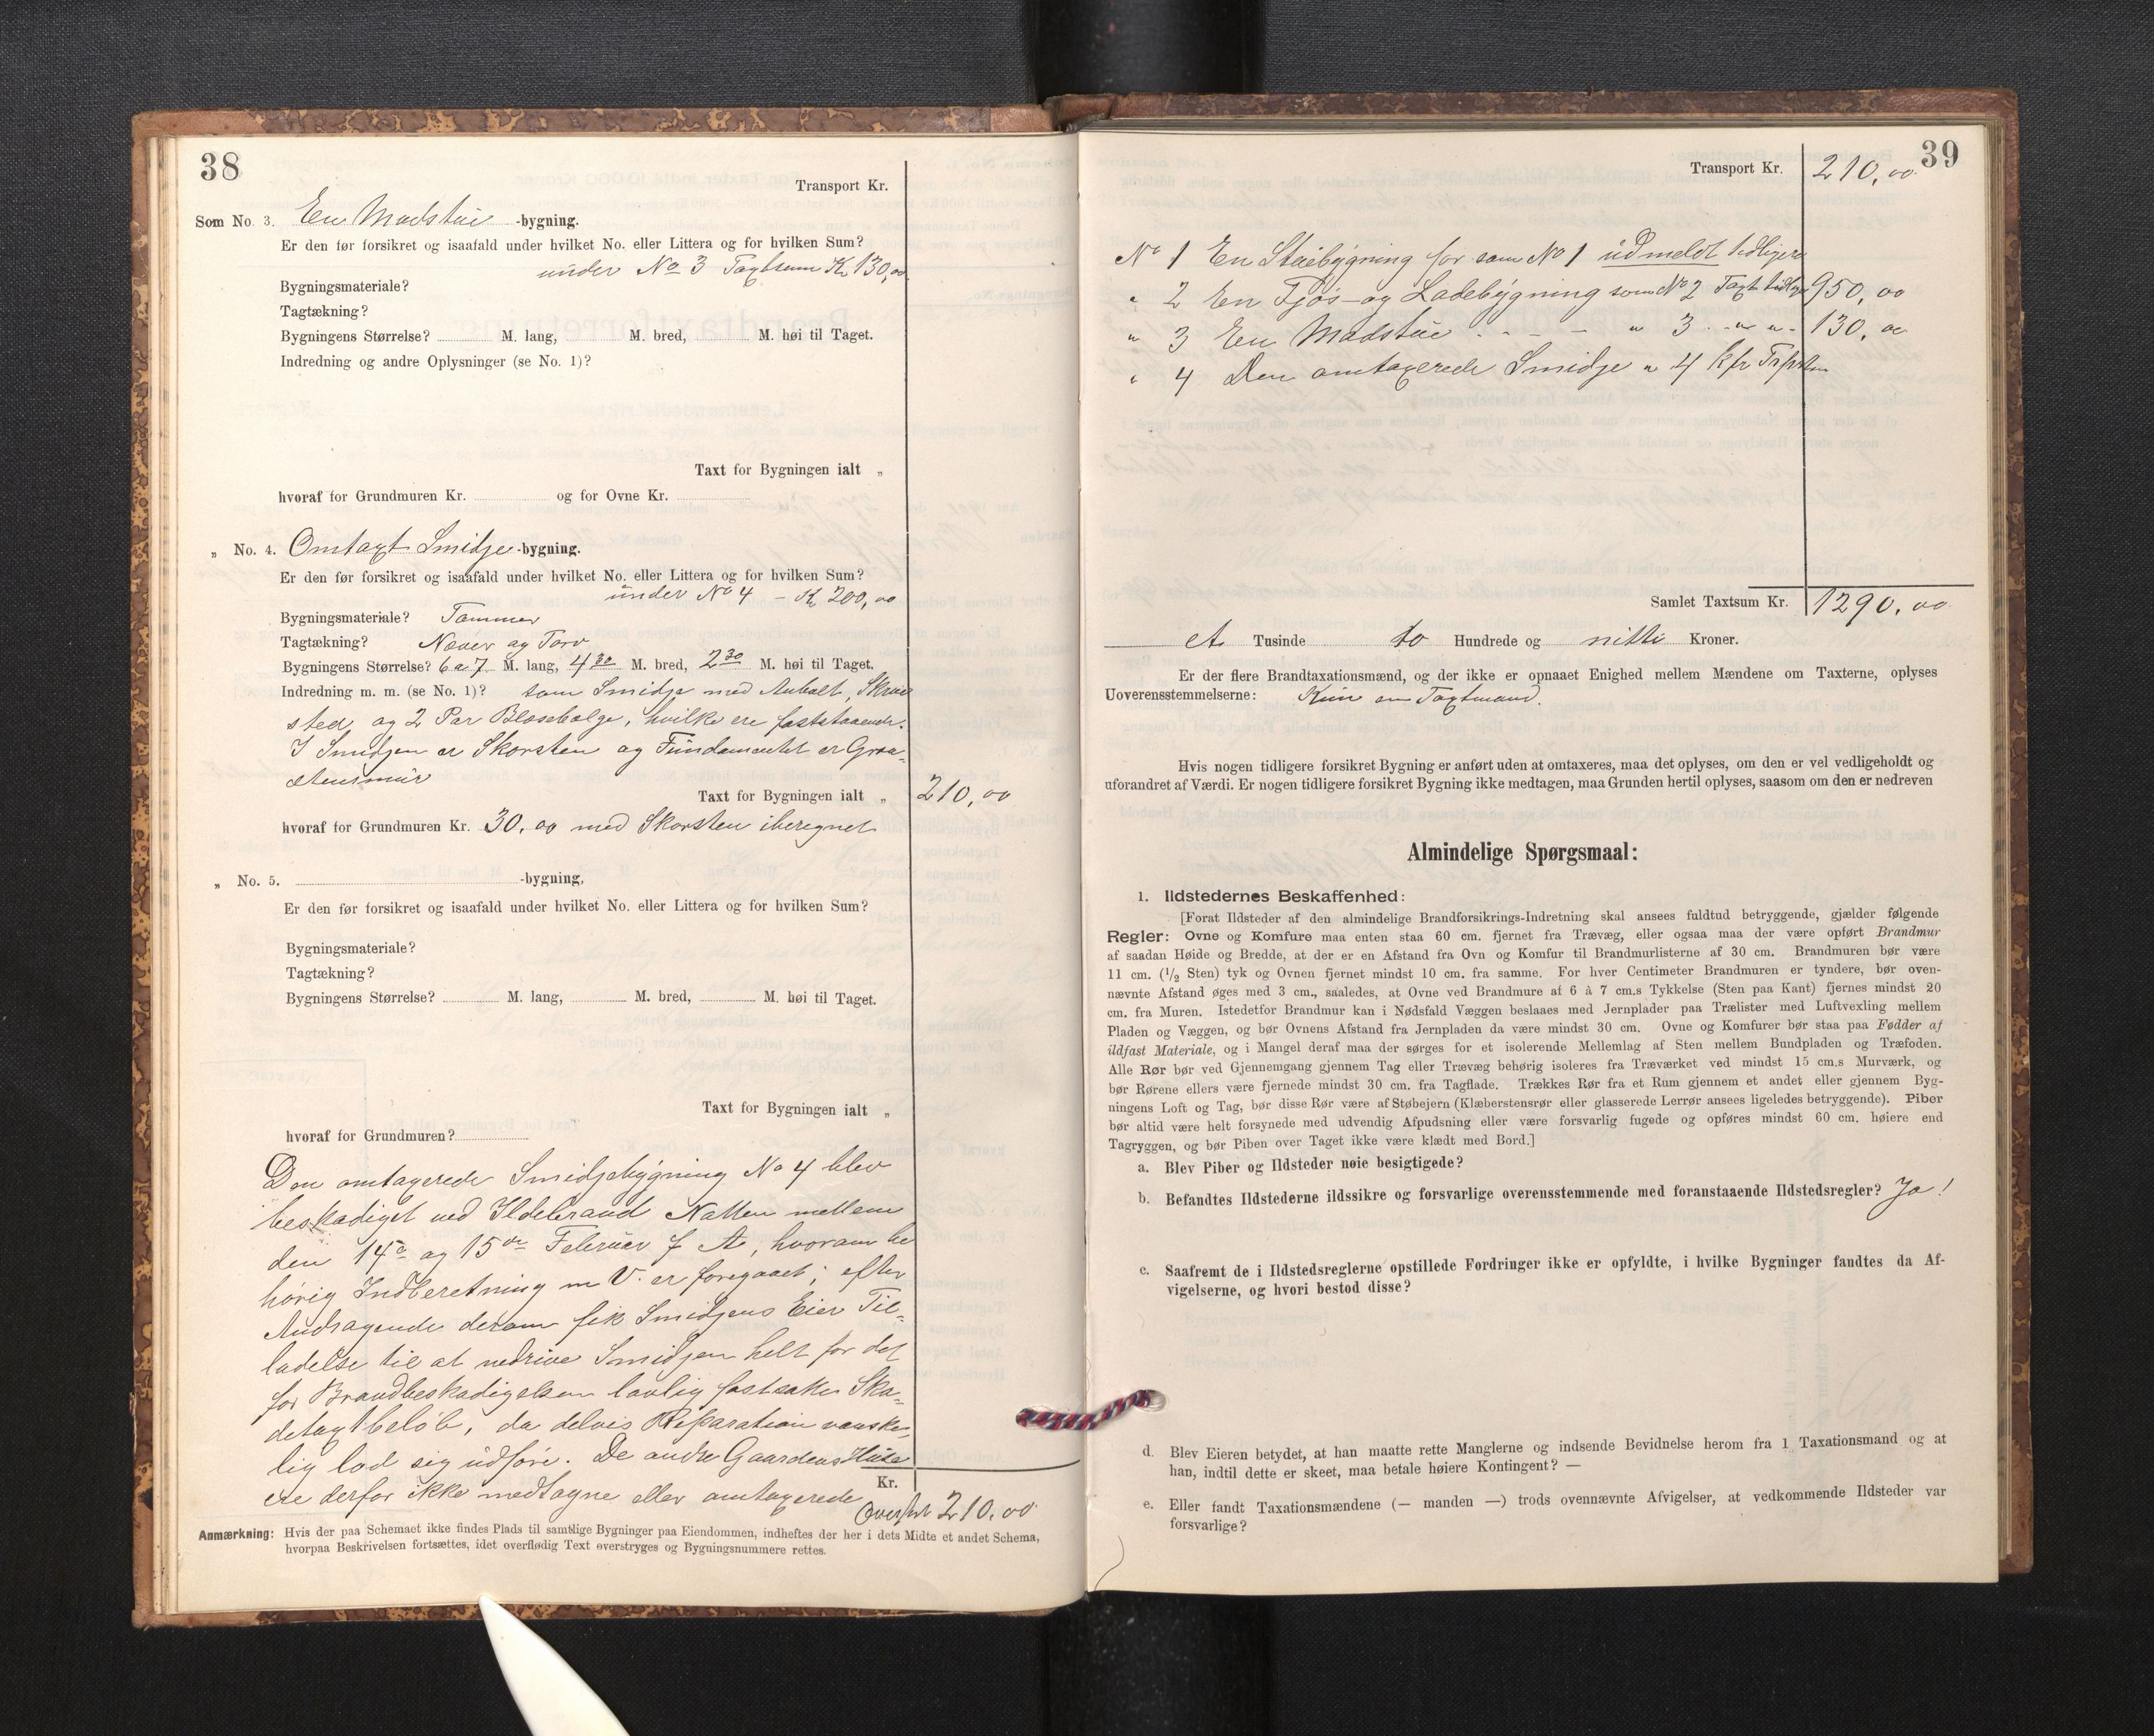 38
Transport Kr.
Som No. 3. En Madstue -bygning.
Er den før forsikret og isaafald under hvilket No. eller Littera og for hvilken Sum?
under No 3 Taxtsum Kr 130,00
Bygningsmateriale?
Tagtækning?
Bygningens Størrelse? M. lang, M. bred, M. høi til Taget.
Indredning og andre Oplysninger (se No. 1)?
Taxt for Bygningen ialt „
hvoraf for Grundmuren Kr. og for Ovne Kr.
„ No. 4. Omtaxt Smidje -bygning.
Er den før forsikret og isaafald under hvilket No. eller Littera og for hvilken Sum?
under No 4 – Kr 200,00
Bygningsmateriale? Tømmer
Tagtækning? Næver og Torv
Bygningens Størrelse? 6 a 7 M. lang, 4 30 M. bred, 2 30 M. høi til Taget.
Indredning m. m. (se No. 1)? som Smidje med Ambolt, Skrue
sted og 2 Par Blæsebolge, hvilke ere faststaaende.
I Smidjen er Skorsten og Fundamentet er Graa-
stensmur
Taxt for Bygningen ialt „ 210,00
hvoraf for Grundmuren Kr. 30,00 med Skorsten iberegnet
„ No. 5. -bygning,
Er den før forsikret og isaafald under hvilket No. eller Littera og for hvilken Sum?
Bygningsmateriale?
Tagtækning?
Bygningens Størrelse? M. lang, M. bred, M. høi til Taget.
Taxt for Bygningen ialt „
hvoraf for Grundmuren?
Den omtaxerede Smidjebygning No 4 blev
beskadiget ved Ildebrand Natten mellem
den 14de og 15de Februar f A, hvorom be
hørig Indberetning m V. er foregaaet; efter
Andragende derom fik Smidjens Eier Til-
ladelse til at nedrive Smidjen helt for det
for Brandbeskadigelsen lovlig fastsatte Ska-
detaxtbeløb, da delvis Reparation vanske-
lig lod sig udføre. De andre Gaardens Huse
ere derfor ikke medtagne eller omtaxerede
Kr.
Overført 210,00
Anmærkning: Hvis der paa Schemaet ikke findes Plads til samtlige Bygninger paa Eiendommen, indheftes der her i dets Midte et andet Schema,
hvorpaa Beskrivelsen fortsættes, idet overflødig Text overstryges og Bygningsnummere rettes.
39
Transport Kr. 210,00
No 1 En Stuebygning før som No 1 udmeldt tidligere
„ 2 En Fjøs- og Ladebygning som No 2 Taxt tidligere 950,00
„ 3 En Madstue - - - „ 3 - „ „ - 130,00
„ 4 Den omtaxerede Smidje „ 4
Samlet Taxtsum Kr. 1290,00
et Tusinde to Hundrede og nitti Kroner.
Er der flere Brandtaxationsmænd, og der ikke er opnaaet Enighed mellem Mændene om Taxterne, oplyses
Uoverensstemmelserne: Kun en Taxtmand.
Hvis nogen tidligere forsikret Bygning er anført uden at omtaxeres, maa det oplyses, om den er vel vedligeholdt og
uforandret af Værdi. Er nogen tidligere forsikret Bygning ikke medtagen, maa Grunden hertil oplyses, saasom om den er nedreven
Almindelige Spørgsmaal:
1. Ildstedernes Beskaffenhed:
[Forat Ildsteder af den almindelige Brandforsikrings-Indretning skal ansees fuldtud betryggende, gjælder følgende
Regler: Ovne og Komfure maa enten staa 60 cm. fjernet fra Trævæg, eller ogsaa maa der være opført Brandmur
af saadan Høide og Bredde, at der er en Afstand fra Ovn og Komfur til Brandmurlisterne af 30 cm. Brandmuren bør være
11 cm. (1/2 Sten) tyk og Ovnen fjernet mindst 10 cm. fra samme. For hver Centimeter Brandmuren er tyndere, bør oven-
nævnte Afstand øges med 3 cm., saaledes, at Ovne ved Brandmure af 6 à 7 cm.s Tykkelse (Sten paa Kant) fjernes mindst 20
cm. fra Muren. Istedetfor Brandmur kan i Nødsfald Væggen beslaaes med Jernplader paa Trælister med Luftvexling mellem
Pladen og Væggen, og bør Ovnens Afstand fra Jernpladen da være mindst 30 cm. Ovne og Komfurer bør staa paa Fødder af
ildfast Materiale, og i Mangel deraf maa der sørges for et isolerende Mellemlag af Sten mellem Bundpladen og Træfoden.
Alle Rør bør ved Gjennemgang gjennem Tag eller Trævæg behørig isoleres fra Træværket ved mindst 15 cm.s Murværk, og
bør Rørene ellers være fjernede mindst 30 cm. fra Tagflade. Trækkes Rør fra et Rum gjennem et andet eller gjennem Byg-
ningens Loft og Tag, bør disse Rør være af Støbejern (Klæberstensrør eller glasserede Lerrør ansees ligeledes betryggende). Piber
bør altid være helt forsynede med udvendig Afpudsning eller være forsvarlig fugede og opføres mindst 60 cm. høiere end
Tagryggen, og bør Piben over Taget ikke være klædt med Bord.]
a. Blev Piber og Ildsteder nøie besigtigede?
b. Befandtes Ildstederne ildssikre og forsvarlige overensstemmende med foranstaaende Ildstedsregler? Ja!
c. Saafremt de i Ildstedsreglerne opstillede Fordringer ikke er opfyldte, i hvilke Bygninger fandtes da Af-
vigelserne, og hvori bestod disse?
d. Blev Eieren betydet, at han maatte rette Manglerne og indsende Bevidnelse herom fra 1 Taxationsmand og at
han, indtil dette er skeet, maa betale høiere Kontingent? —
e. Eller fandt Taxationsmændene (— manden —) trods ovennævnte Afvigelser, at vedkommende Ildsteder var
forsvarlige?